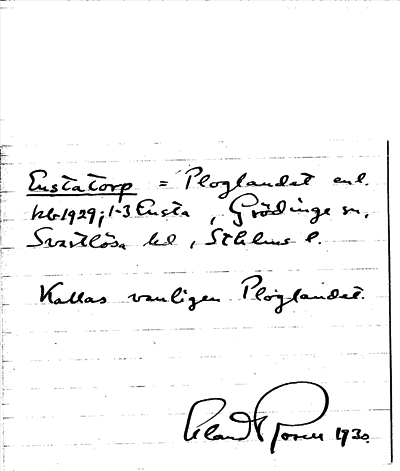 Enstatorp = Ploglandet enl.
kb 1929; 1-3 Ensta, Grödinge sn,
Svartlösa hd, Sthlms l.
Kallas vanligen Ploglandet.
1930